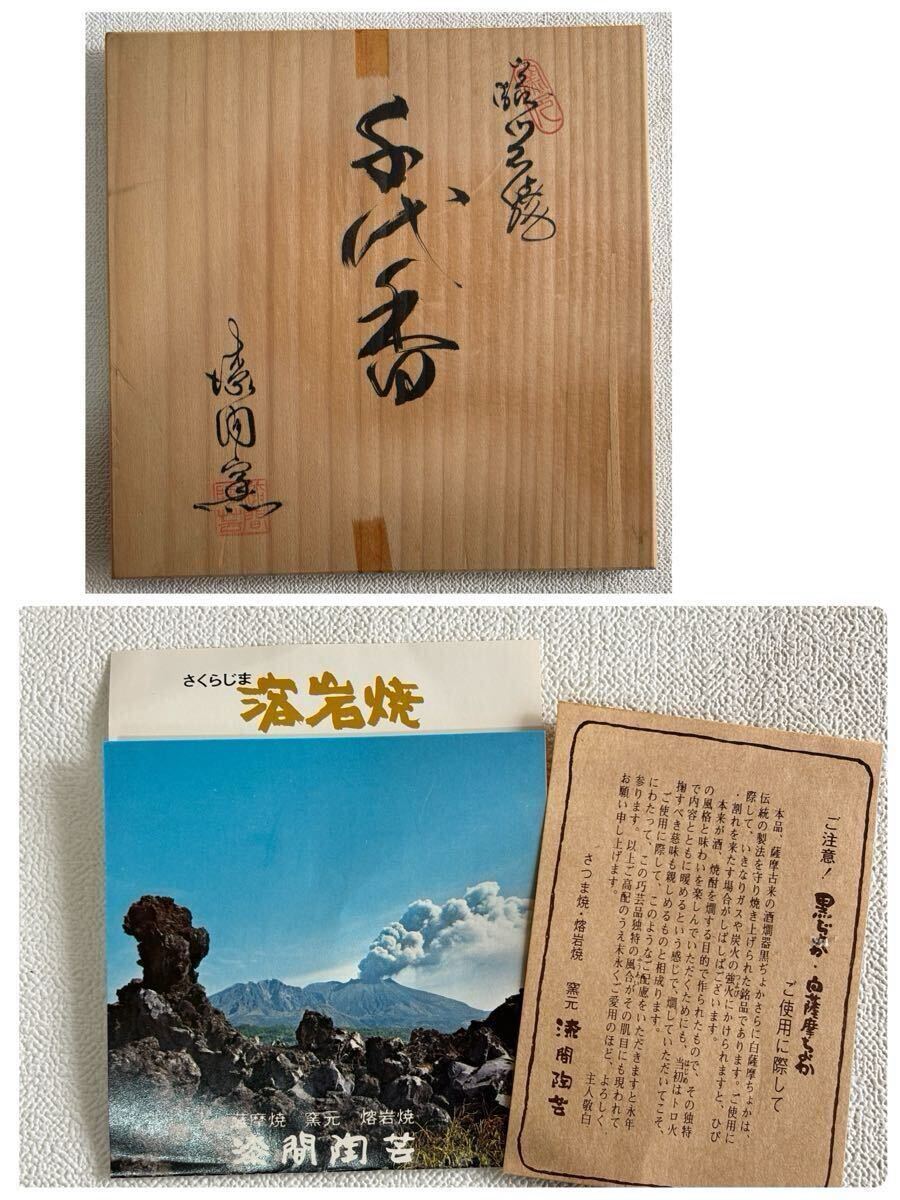 熔岩焼
千代香
漆間窯
さくらじま
溶岩焼
薩摩焼 窯元 熔岩焼
漆間陶芸
ご注意! 黒ぢょか・白薩摩ちょか
ご使用に際して
本品、薩摩古来の酒燗器黒ぢょかさらに白薩摩ちょかは、
伝統の製法を守り焼き上げられた銘品であります。ご使用に
際して、いきなりガスや炭火の強火にかけられますと、ひび
・割れを来たす場合がしばしばございます。
本来が酒、焼酎を燗する目的で作られたもので、その独特
の風格と味わいを楽しんでいただくためにも、当初はトロ火
で内容とともに暖めるという感じで、燗していただいてこそ、
掬すべき慈味も親しめるものと相成ります。
ご使用に際して、このようなご配慮をいただきますと永年
にわたって、この巧芸品独特の風合がその肌目にも現われて
参ります。以上ご高配のうえ末永くご愛用のほど、よろしく
お願い申し上げます。
主人敬白
さつま焼・熔岩焼 窯元 漆間陶芸